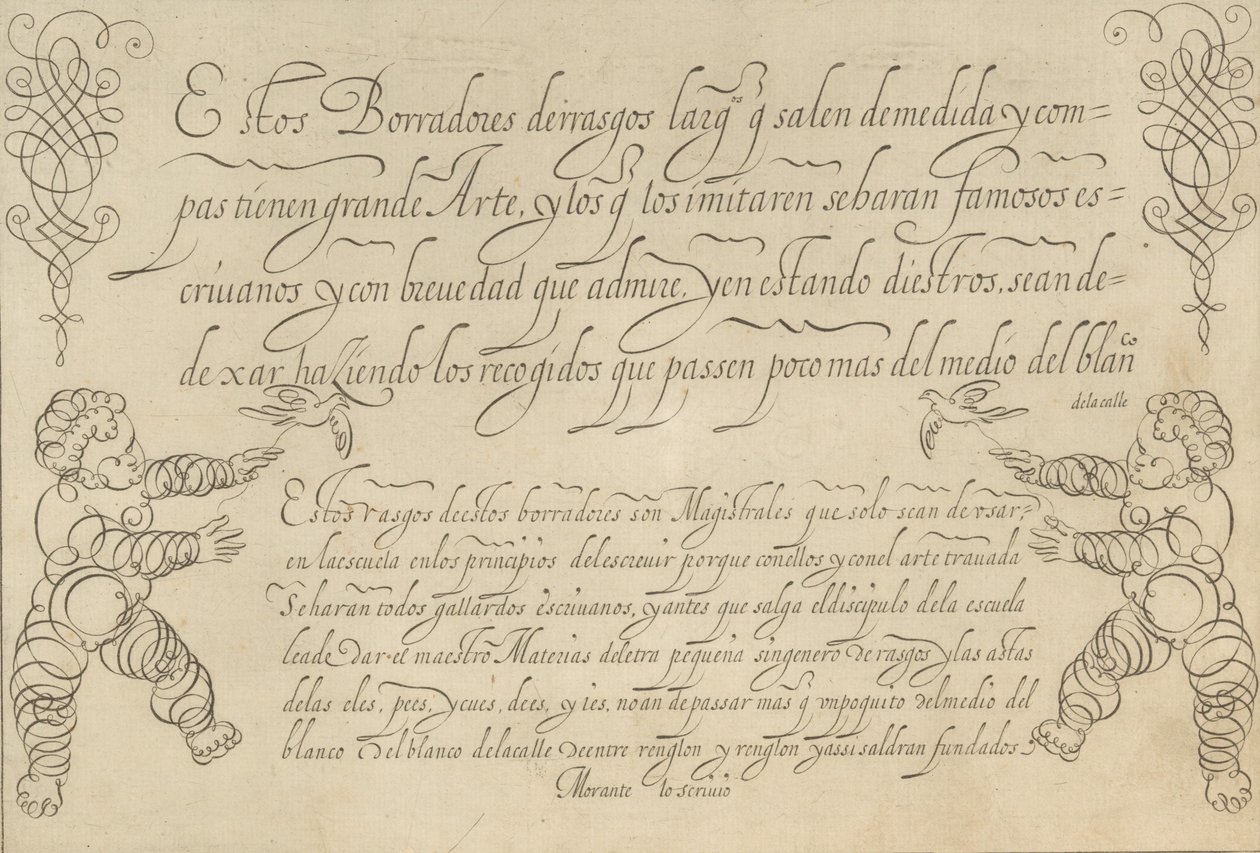 Estos Borradores derrasgos largos q̃ salen demedida y com=
pas tienen grande Arte, y los q̃ los imitaren seharan famosos es=
criuanos y con breuedad que admire, y en estando diestros, se an de=
de xar haziendo los recogidos que passen poco mas del medio del blanco
delacalle
Estos rasgos deestos borradores son Magistrales que solo sean de vsar,=
en laescuela enlos principios delescreuir porque conellos y conel arte trauada
Seharan todos gallardos escriuanos, y antes que salga eldiscipulo dela escuela
leade Dar el maestro Materias deletra pequeña singenero de rasgos y las astas
delas eles, pees, y cues, dees, y ies, no an depassar mas q̃ vnpoquito delmedio del
blanco del blanco delacalle deentre renglon y renglon yassi saldran fundados
Morante lo scriuio